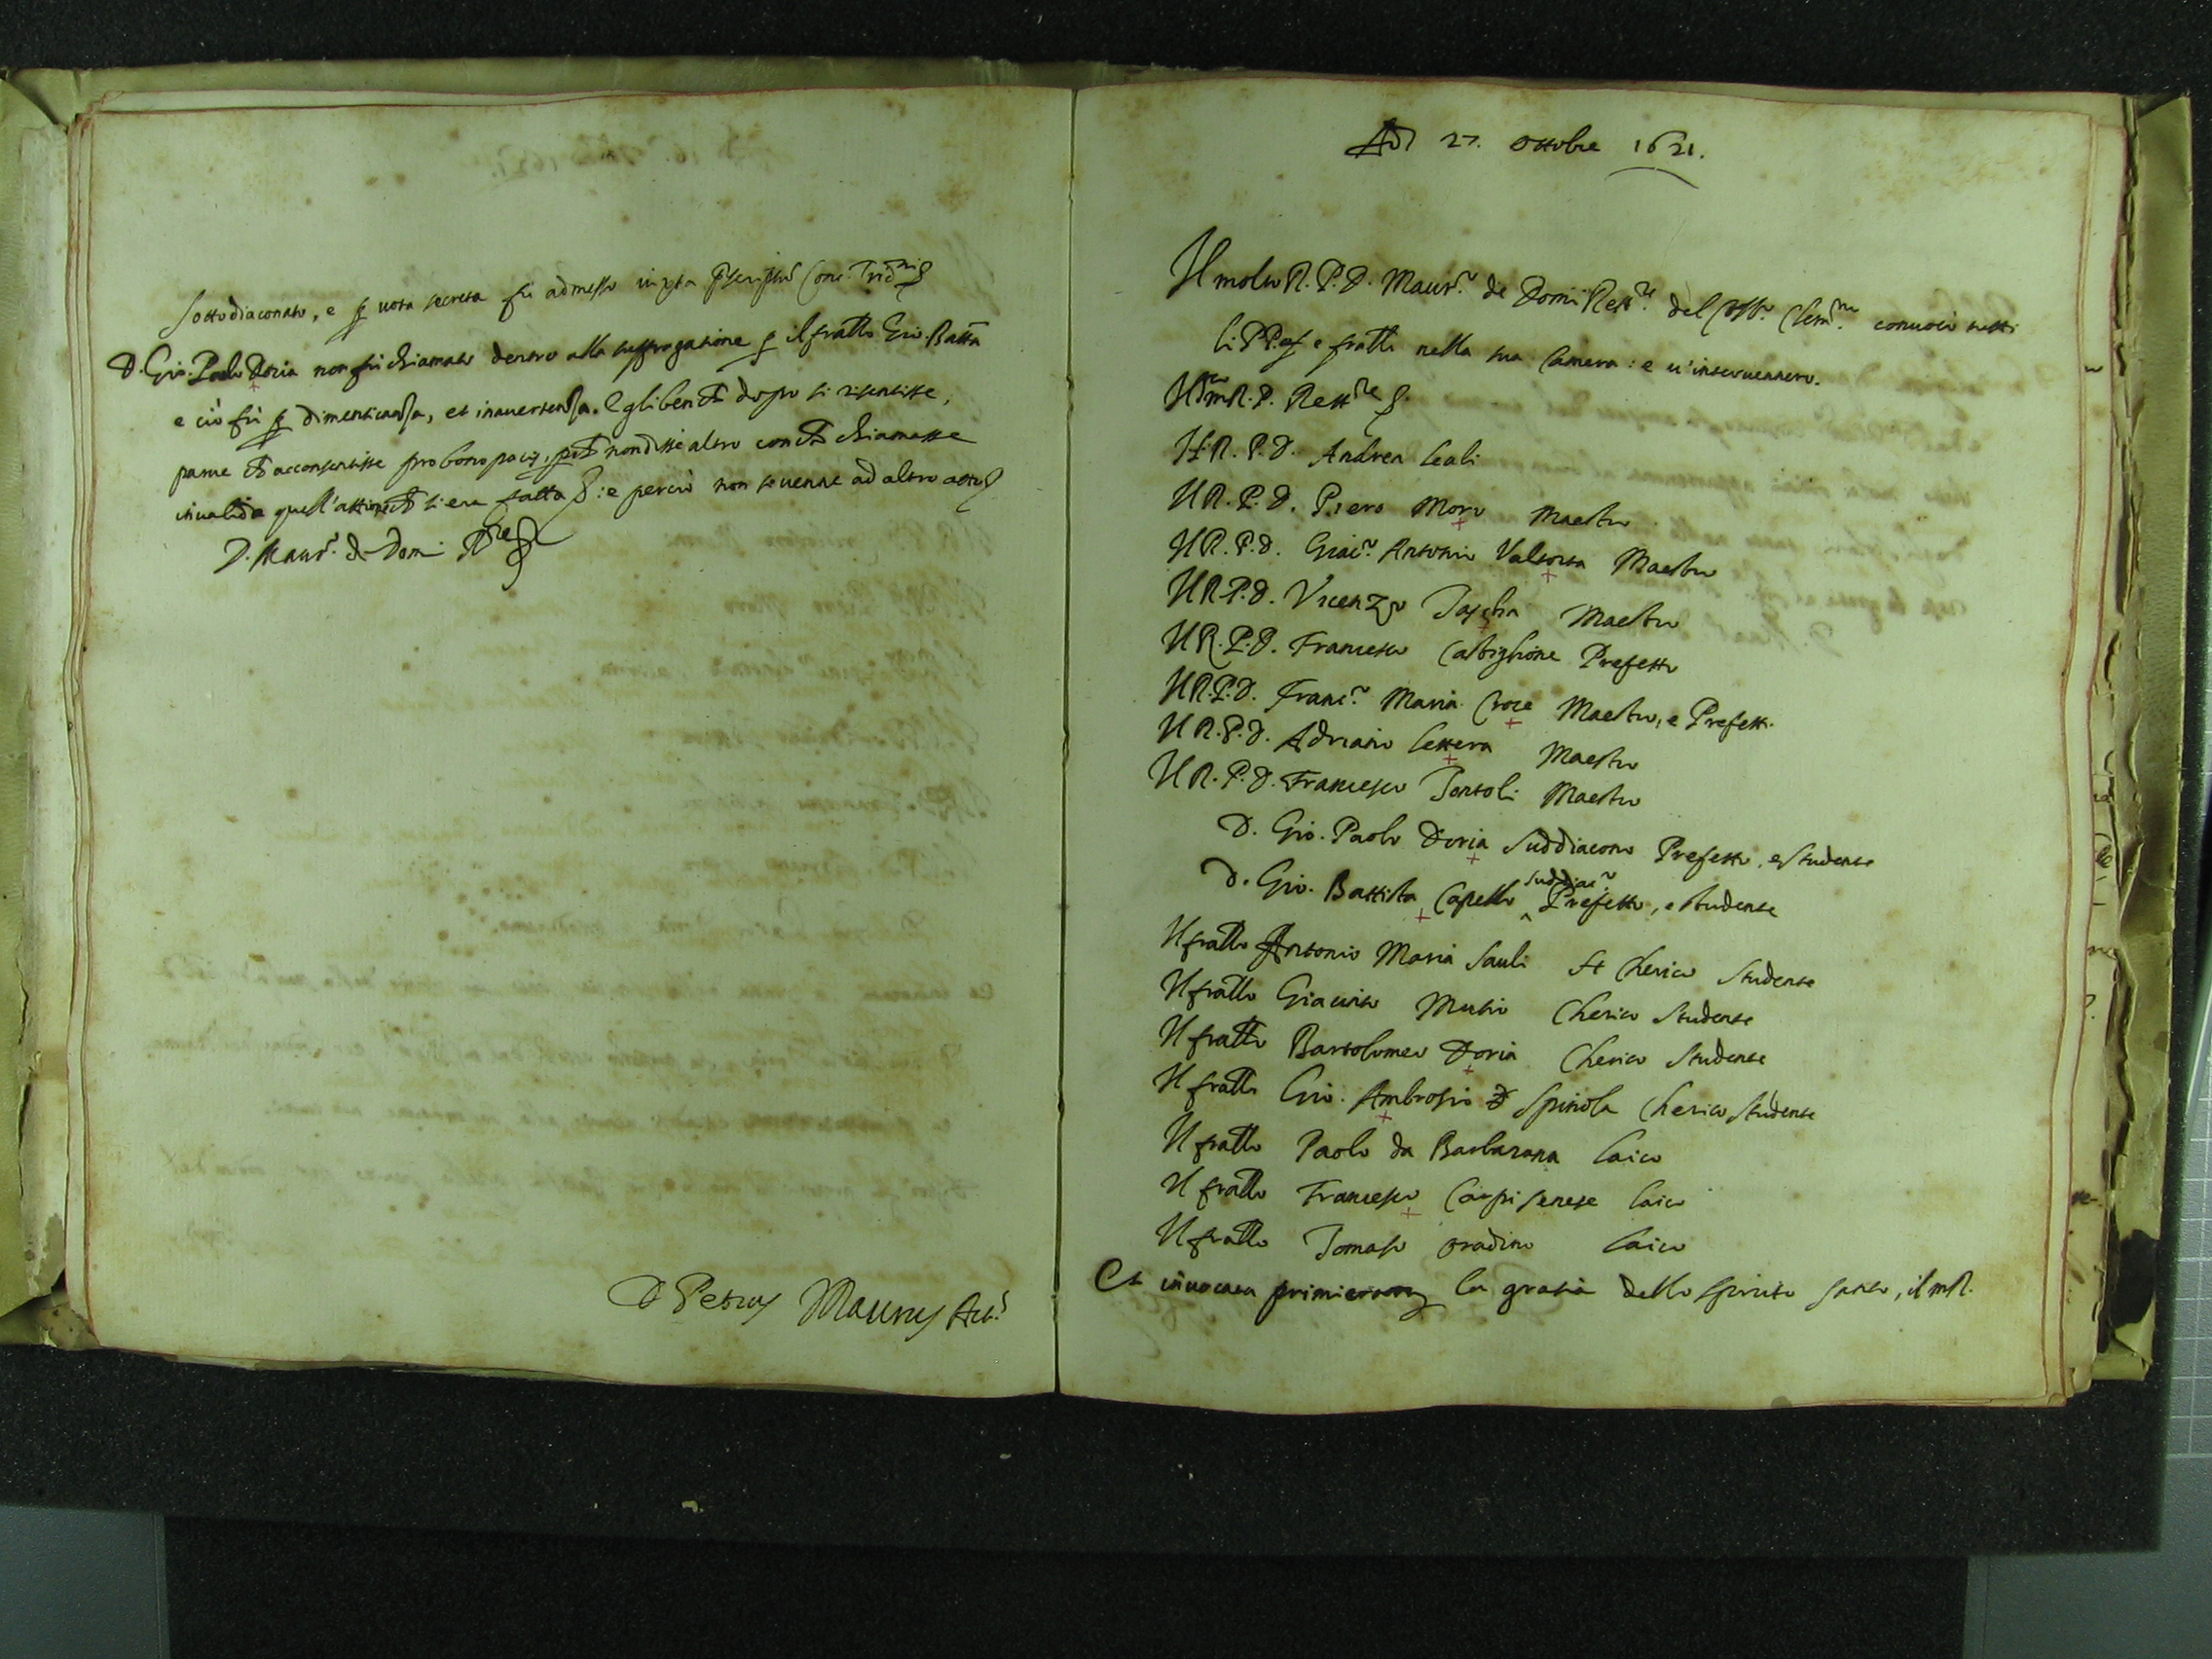 sottodiaconato, e p vota secreta fu admesso iuxta pscriptu Conc. Trid.ni
D. Gio. Paolo Doria non fu chiamato dentro alla suffragatione p il fratto Gio. Batta
e ciò fù p dimenticanza, et inavertenza. Egli bench dopo si risentisse,
parve ch acconsentisse pro bono pacis, perch non disse altro con ch chiamasse
invalida quell'attione ch si era fatta: e perciò non si venne ad altro atto
D. Maur.º de Domi
D Petrus Maurus Act.s
Adi 27. Ottobre 1621.
Il molto R. P. D. Maur.º de Domi Rett.re del Coll.º Clem.no convocò tutti
li PP. e fratti nella sua Camera: e v'intervennero.
Il m.to R. P. Rett.re
Il R. P. D. Andrea Leali
Il R. P. D. Piero Moro Maestro
Il R. P. D. Giac.º Antonio Valtorta Maestro
Il R. P. D. Vicenzo Maestro
Il R. P. D. Francesco Castiglione Prefetto
Il R. P. D. Franc.º Maria Croce Maestro, e Prefett.
Il R. P. D. Adriano Lettera Maestro
Il R. P. D. Francesco Tontoli Maestro
D. Gio. Paolo Doria Suddiacono Prefetto, e Studente
D. Gio. Battista Capello suddiac.º Prefetto, e studente
Il fratto Antonio Maria Sauli Cherico Studente
Il fratto Giacinto Mutio Cherico Studente
Il fratto Bartolomeo Doria Cherico Studente
Il fratto Gio. Ambrosio Spinola Cherico Studente
Il fratto Paolo da Barbarana Laico
Il fratto Francesco Carpi senese Laico
Il fratto Tomaso Oradino Laico
Et invocata primieram la gratia dello Spirito Santo, il m R.